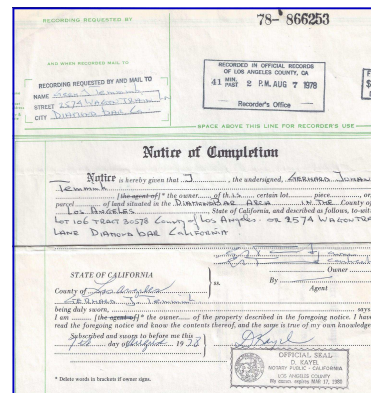 RECORDING REQUESTED BY
78- 866253
AND WHEN RECORDED MAIL TO
RECORDING REQUESTED BY AND MAIL TO
NAME
STREET 2574 WAGON TRAIN LN
CITY DIAMOND BAR CA.
RECORDED IN OFFICIAL RECORDS
OF LOS ANGELES COUNTY, CA
41 MIN. PAST 2 P.M. AUG 7 1978
Recorder's Office
SPACE ABOVE THIS LINE FOR RECORDER'S USE
Notice of Completion
Notice is hereby given that I, the undersigned, GERHARD
[the agent of]* the owner of this certain lot piece or
parcel of land situated in the DIAMOND BAR AREA IN THE County of
Los Angeles State of California, and described as follows, to-wit
LOT 106 TRACT 30578 County of Los Angeles. OR 2574 WAGON TRA
LANE DIAMOND BAR CALIFORNIA.
Owner
By
Agent
STATE OF CALIFORNIA
County of Los Angeles
ss.
GERHARD J.
being duly sworn, says
I am [the agent of]* the owner of the property described in the foregoing notice. I have
read the foregoing notice and know the contents thereof, and the same is true of my own knowledge
Subscribed and sworn to before me this
day of August 19
D. Kayel
OFFICIAL SEAL
D. KAYEL
NOTARY PUBLIC - CALIFORNIA
LOS ANGELES COUNTY
My comm. expires MAR 17, 1980
* Delete words in brackets if owner signs.